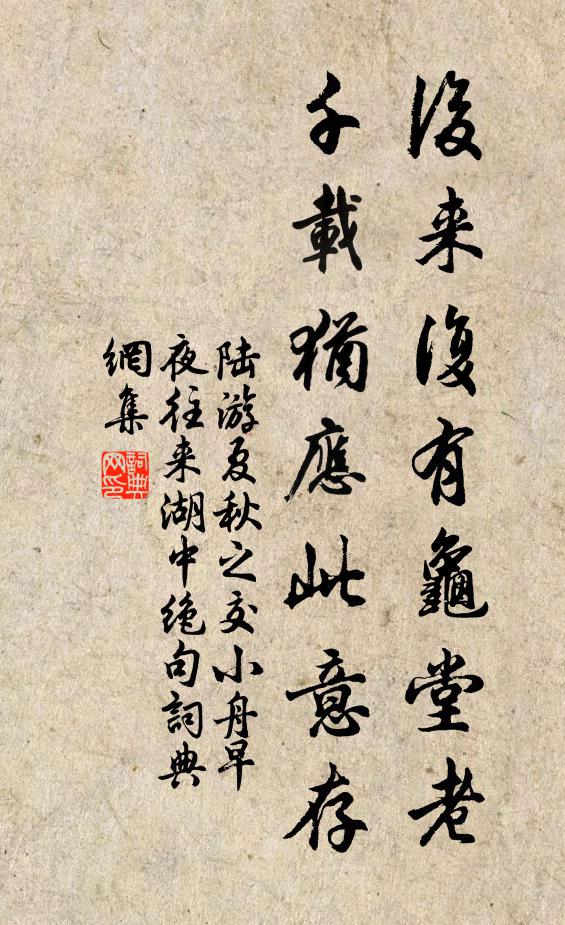 後来復有龜堂老
千載猶應此意存
陆游夏秋之交小舟早
夜往来湖中绝句詞典
網集
詞典网印